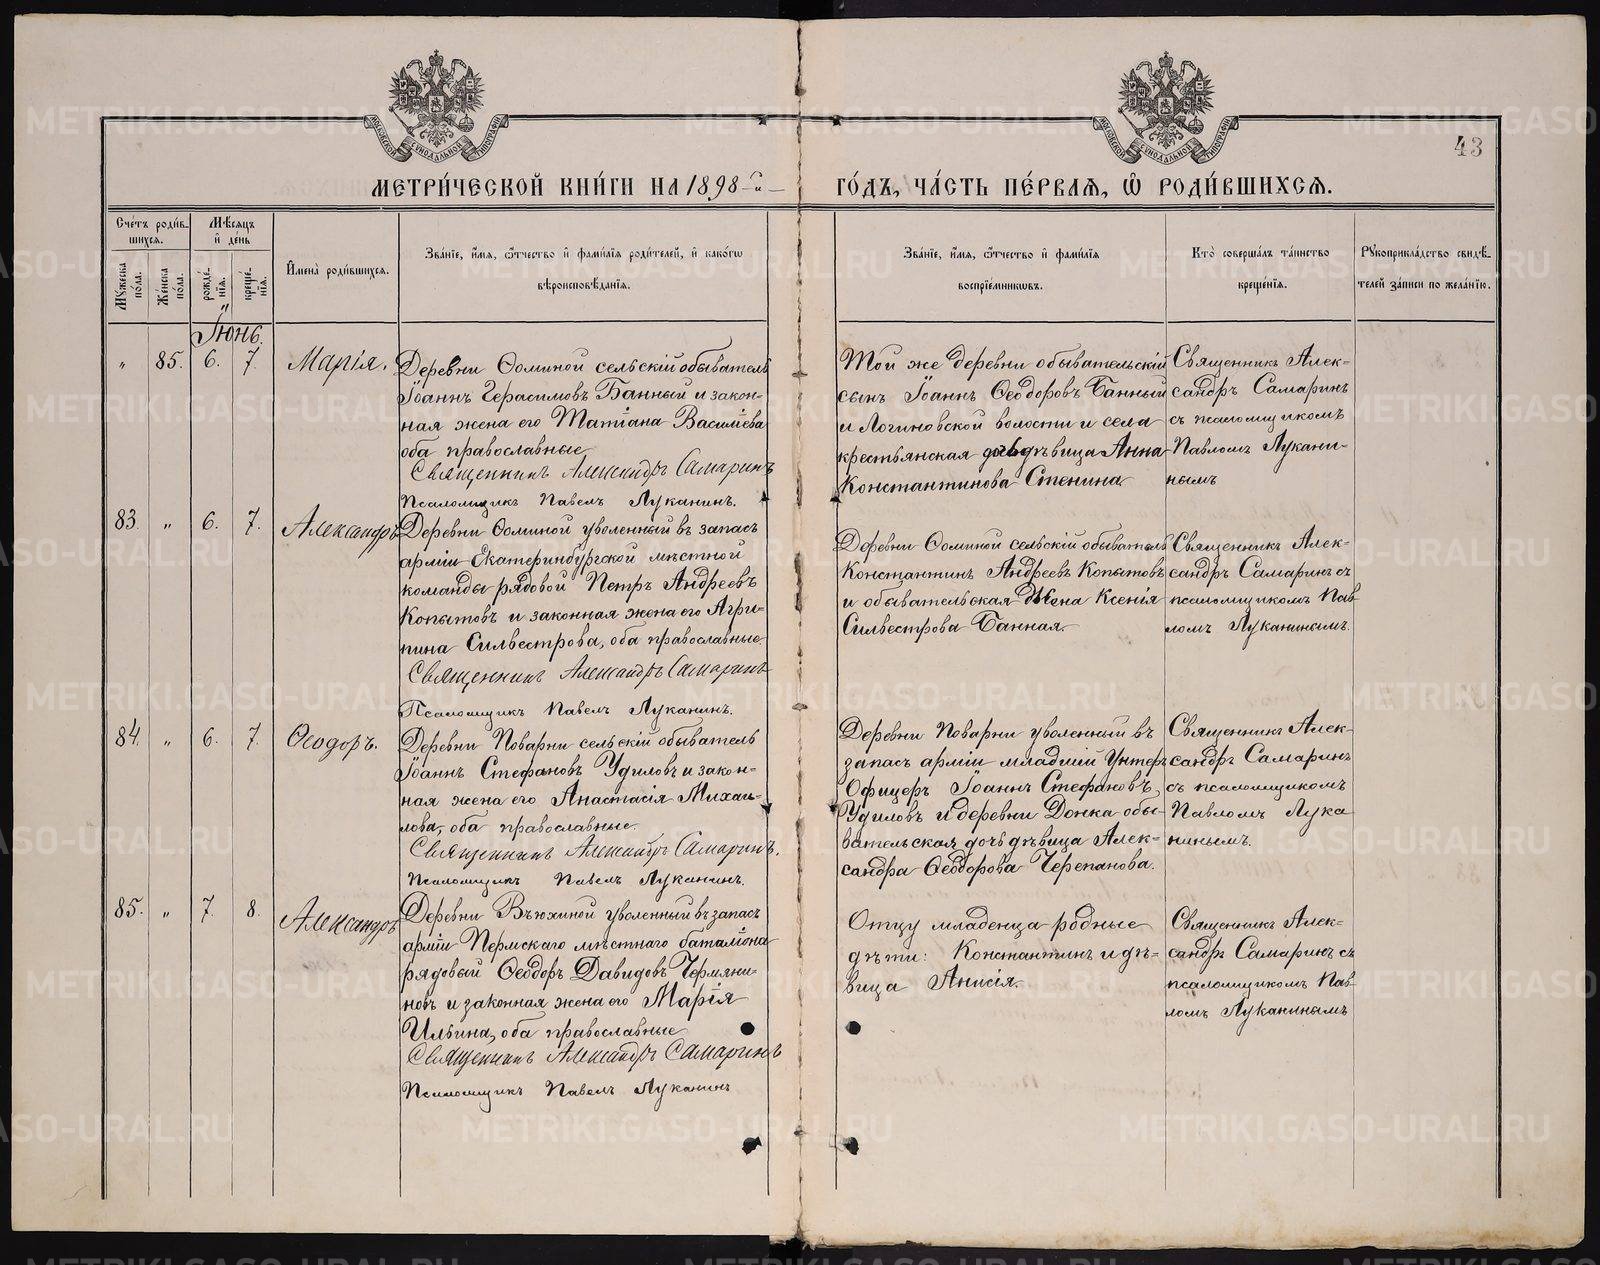 43
МЕТРИ́ЧЕСКОЙ КНИ́ГИ НА 1898-й ГО́ДЪ, ЧА́СТЬ ПЕ́РВАѦ, Ѡ҆ РОДИ́ВШИХСѦ.
МОСКОВСКОЙ СѴНОДАЛЬНОЙ ТИПОГРАФІИ
МОСКОВСКОЙ СѴНОДАЛЬНОЙ ТИПОГРАФІИ
Сче́тъ роди́в-
шихсѧ.
Мꙋ́жеска по́ла.
Же́нска по́ла.
Мѣ́сѧцъ
и҆ де́нь
рожде́нїѧ.
креще́нїѧ.
И҆мена̀ роди́вшихсѧ.
Зва́нїе, и҆́мѧ, ѻ҆́тчество и҆ фами́лїѧ роди́телей, и҆ како́гѡ
вѣроисповѣ́данїѧ.
Зва́нїе, и҆́мѧ, ѻ҆́тчество и҆ фами́лїѧ
воспрїе́мникѡвъ.
Кто̀ соверша́лъ та́инство
креще́нїѧ.
Рꙋкоприкла́дство свидѣ́-
телей за́писи по жела́нїю.
Іюнь.
„ 85. 6. 7. Марія.
Деревни Ѳоминой сельскій обыватель
Іоаннъ Герасимовъ Банный и закон-
ная жена его Татіана Василіева
оба православные
Священникъ Александръ Самаринъ
Псаломщикъ Павелъ Луканинъ.
Той же деревни обывательскій
сынъ Іоаннъ Ѳеодоровъ Банный
и Логиновской волости и села
крестьянская дочь дѣвица Анна
Константинова Стенина
Священникъ Алек-
сандръ Самаринъ
съ псаломщикомъ
Павломъ Лукани-
нымъ
83. „ 6. 7. Александръ
Деревни Ѳоминой уволенный въ запасъ
арміи Екатеринбургской мѣстной
команды рядовой Петръ Андреевъ
Копытовъ и законная жена его Агри-
пина Силвестрова, оба православные
Священникъ Александръ Самаринъ
Псаломщикъ Павелъ Луканинъ.
Деревни Ѳоминой сельскій обыватель
Константинъ Андреевъ Копытовъ
и обывательская жена Ксенія
Силвестрова Банная.
Священникъ Алек-
сандръ Самаринъ съ
псаломщикомъ Пав
ломъ Луканинымъ.
84. „ 6. 7. Ѳеодоръ.
Деревни Поварни сельскій обыватель
Іоаннъ Стефановъ Удиловъ и закон-
ная жена его Анастасія Михаи-
лова, оба православные.
Священникъ Александръ Самаринъ.
Псаломщикъ Павелъ Луканинъ.
Деревни Поварни уволенный въ
запасъ арміи младшій Унтеръ
Офицеръ Іоаннъ Стефановъ
Удиловъ и деревни Донка обы-
вательская дочь дѣвица Алек-
сандра Ѳеодорова Черепанова.
Священникъ Алек-
сандръ Самаринъ
съ псаломщикомъ
Павломъ Лука
нинымъ.
85. „ 7. 8. Александръ
Деревни Вьюхиной уволенный въ запасъ
арміи Пермскаго мѣстнаго баталіона
рядовый Ѳеодоръ Давидовъ Чермяни-
новъ и законная жена его Марія
Ильина, оба православные
Священникъ Александръ Самаринъ
Псаломщикъ Павелъ Луканинъ
Отцу младенца родные
дѣти: Константинъ и дѣ-
вица Анисія.
Священникъ Алек-
сандръ Самаринъ съ
псаломщикомъ Пав
ломъ Луканинымъ
METRIKI.GASO-URAL.RU